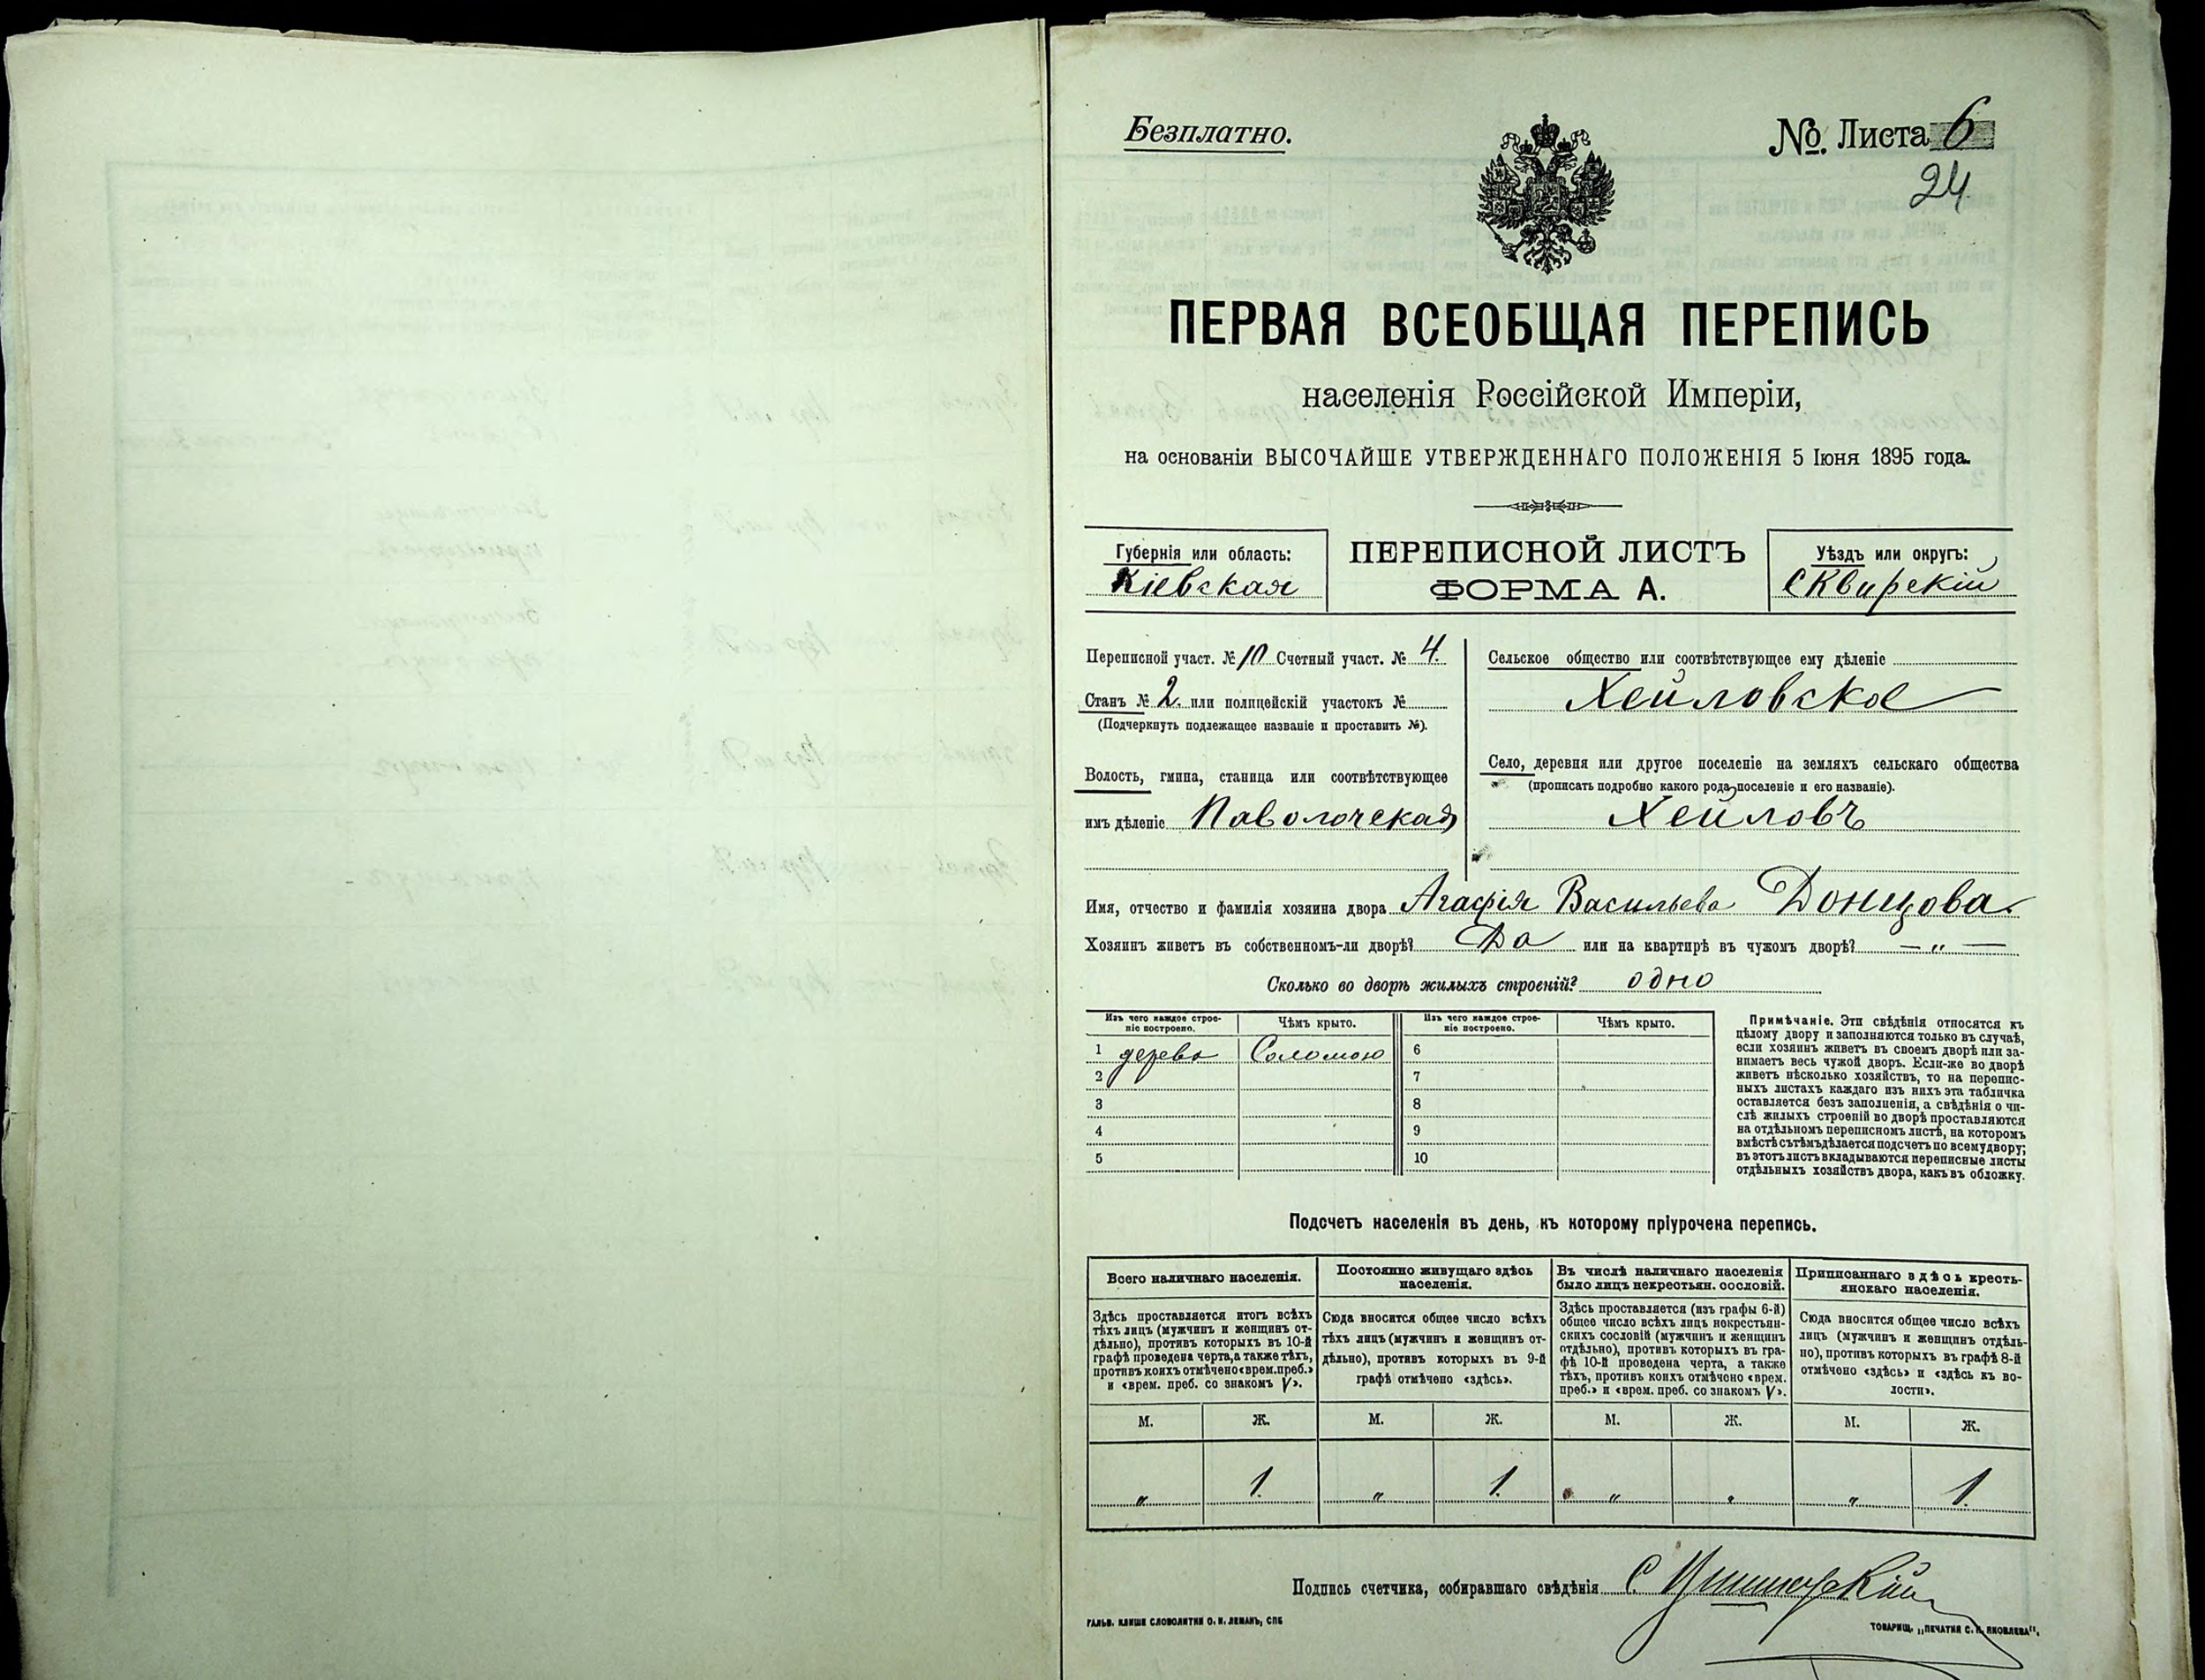 Безплатно.
№ Листа 6
24
ПЕРВАЯ ВСЕОБЩАЯ ПЕРЕПИСЬ
населенія Россійской Имперіи,
на основаніи ВЫСОЧАЙШЕ УТВЕРЖДЕННАГО ПОЛОЖЕНІЯ 5 Іюня 1895 года.
Губернія или область:
Кіевская
ПЕРЕПИСНОЙ ЛИСТЪ
ФОРМА А.
Уѣздъ или округъ:
Сквирскій
Переписной участ. № 10 Счетный участ. № 4.
Станъ № 2. или полицейскій участокъ №
(Подчеркнуть подлежащее названіе и проставить №).
Волость, гмина, станица или соотвѣтствующее
имъ дѣленіе Паволочская
Сельское общество или соотвѣтствующее ему дѣленіе
Хейловское
Село, деревня или другое поселеніе на земляхъ сельскаго общества
(прописать подробно какого рода поселеніе и его названіе).
Хейловъ
Имя, отчество и фамилія хозяина двора Агафія Васильева Донцова
Хозяинъ живетъ въ собственномъ-ли дворѣ? Да или на квартирѣ въ чужомъ дворѣ? — „ —
Сколько во дворѣ жилыхъ строеній? одно
Изъ чего каждое строе-
ніе построено.
Чѣмъ крыто.
Изъ чего каждое строе-
ніе построено.
Чѣмъ крыто.
1 дерево Соломою 6
2 7
3 8
4 9
5 10
Примѣчаніе. Эти свѣдѣнія относятся къ
цѣлому двору и заполняются только въ случаѣ,
если хозяинъ живетъ въ своемъ дворѣ или за-
нимаетъ весь чужой дворъ. Если-же во дворѣ
живетъ нѣсколько хозяйствъ, то на перепис-
ныхъ листахъ каждаго изъ нихъ эта табличка
оставляется безъ заполненія, а свѣдѣнія о чи-
слѣ жилыхъ строеній во дворѣ проставляются
на отдѣльномъ переписномъ листѣ, на которомъ
вмѣстѣ съ тѣмъ дѣлается подсчетъ по всему двору;
въ этотъ листъ вкладываются переписные листы
отдѣльныхъ хозяйствъ двора, какъ въ обложку.
Подсчетъ населенія въ день, къ которому пріурочена перепись.
Всего наличнаго населенія.
Здѣсь проставляется итогъ всѣхъ
тѣхъ лицъ (мужчинъ и женщинъ от-
дѣльно), противъ которыхъ въ 10-й
графѣ проведена черта, а также тѣхъ,
противъ коихъ отмѣчено «врем. преб.»
и «врем. преб. со знакомъ V».
Постоянно живущаго здѣсь
населенія.
Сюда вносится общее число всѣхъ
тѣхъ лицъ (мужчинъ и женщинъ от-
дѣльно), противъ которыхъ въ 9-й
графѣ отмѣчено «здѣсь».
Въ числѣ наличнаго населенія
было лицъ некрестьян. сословій.
Здѣсь проставляется (изъ графы 6-й)
общее число всѣхъ лицъ некрестьян-
скихъ сословій (мужчинъ и женщинъ
отдѣльно), противъ которыхъ въ гра-
фѣ 10-й проведена черта, а также
тѣхъ, противъ коихъ отмѣчено «врем.
преб.» и «врем. преб. со знакомъ V».
Приписаннаго здѣсь кресть-
янскаго населенія.
Сюда вносится общее число всѣхъ
лицъ (мужчинъ и женщинъ отдѣль-
но), противъ которыхъ въ графѣ 8-й
отмѣчено «здѣсь» и «здѣсь къ во-
лости».
М. Ж. М. Ж. М. Ж. М. Ж.
„ 1. „ 1. „ „ „ 1.
Подпись счетчика, собиравшаго свѣдѣнія С.
ГАЛЬВ. КЛИШЕ СЛОВОЛИТНИ О. И. ЛЕМАНЪ, СПБ
ТОВАРИЩ. „ПЕЧАТНЯ С. П. ЯКОВЛЕВА".